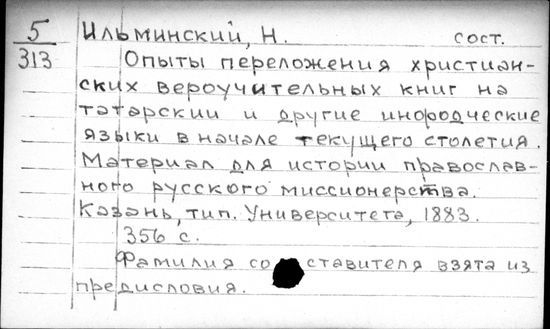 5 Ильминский, Н. сост.
313 Опыты переложения христиан-
ских вероучительных книг на
татарский и другие инородческие
языки в начале текущего столетия.
Материал для истории православ-
ного русского миссионерства.
Казань, тип. Университета, 1883.
356 с.
Фамилия составителя взята из
предисловия.